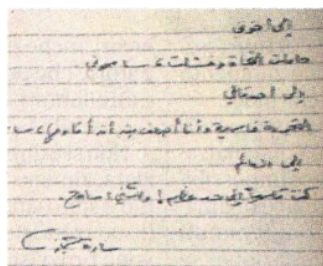 إلى أخوتي
حاولت النجاة وفشلت، سامحوني.
إلى أصدقائي
التجربة قاسية وأنا أضعف من أن أقاومها، سا
إلى العالم
كنت قاسياً إلى حد عظيم! ولكني أسامح.
سارة حجازي